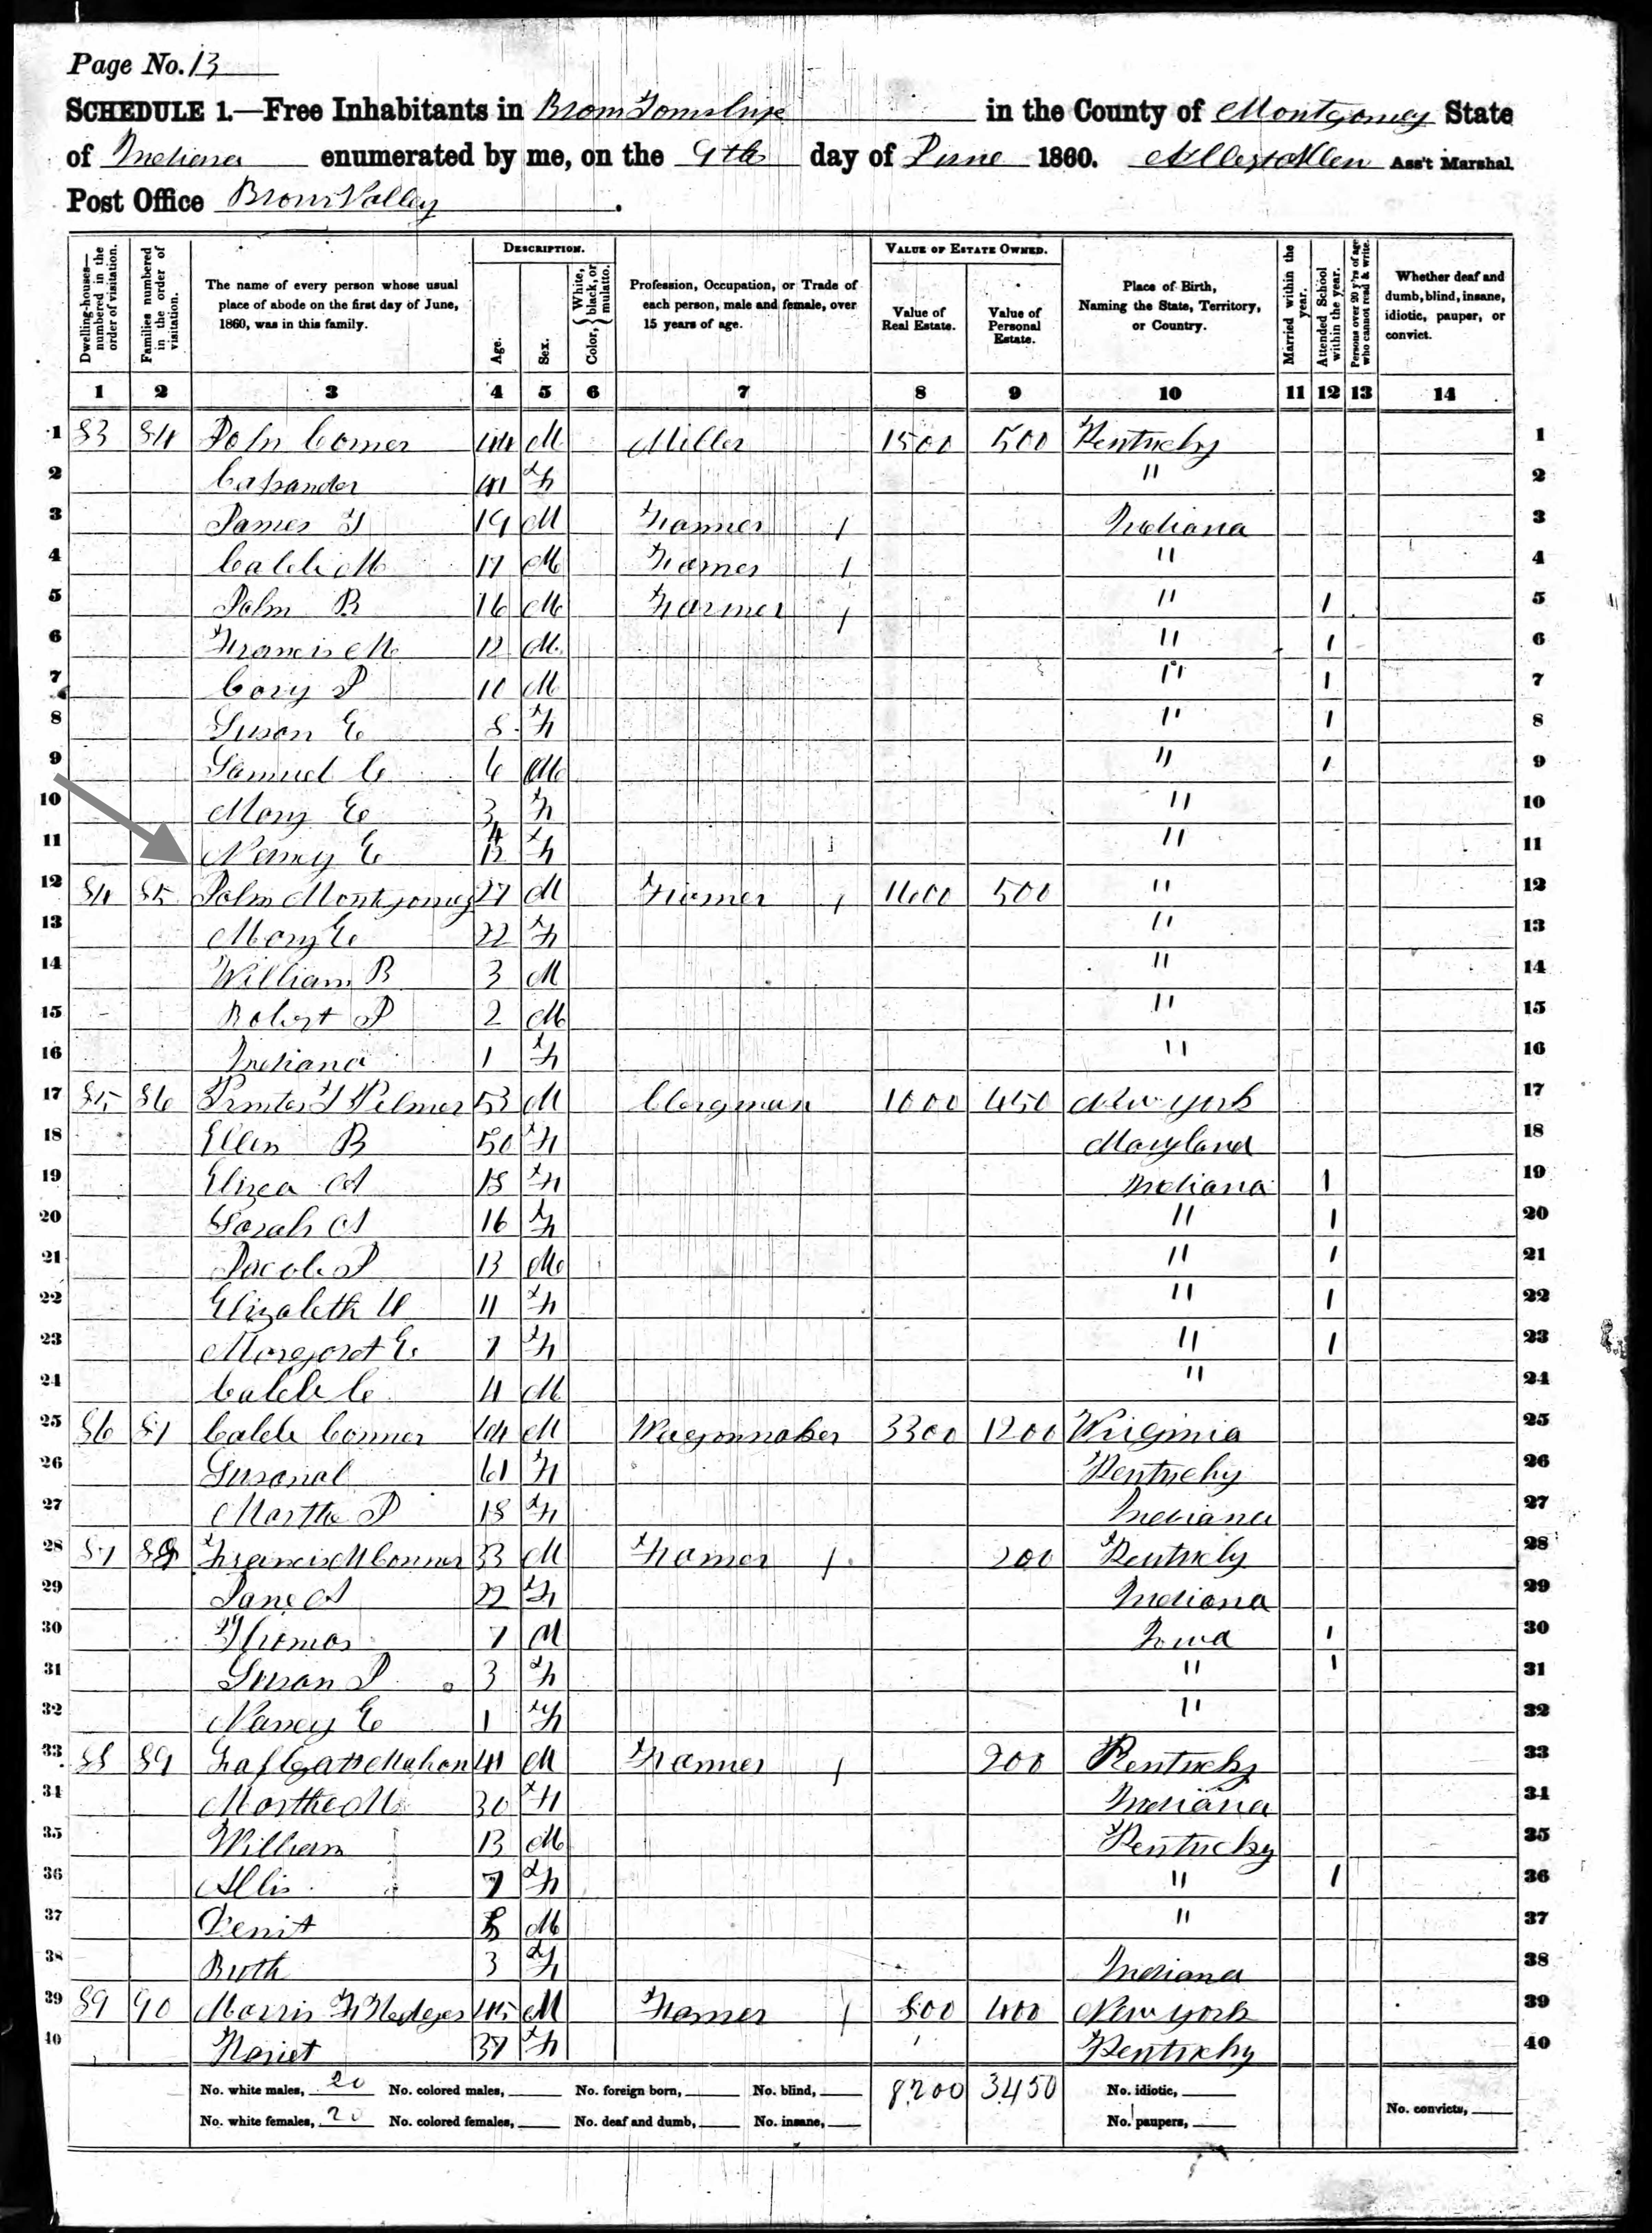 Page No. 13
SCHEDULE 1.—Free Inhabitants in Brown Township in the County of Montgomery State
of Indiana enumerated by me, on the 9th day of June 1860. Ass't Marshal
Post Office Brown Valley.
Dwelling-houses—numbered in the order of visitation. Families numbered in the order of visitation. The name of every person whose usual place of abode on the first day of June, 1860, was in this family. DESCRIPTION. Age. Sex. Color, {White, black, or mulatto. Profession, Occupation, or Trade of each person, male and female, over 15 years of age. VALUE OF ESTATE OWNED. Value of Real Estate. Value of Personal Estate. Place of Birth, Naming the State, Territory, or Country. Married within the year. Attended School within the year. Persons over 20 y'rs of age who cannot read & write. Whether deaf and dumb, blind, insane, idiotic, pauper, or convict.
1 2 3 4 5 6 7 8 9 10 11 12 13 14
1 83 84 John Comer 44 M Miller 1500 500 Kentucky 1
2 Cassander 41 F " 2
3 James T 19 M Farmer / Indiana 3
4 Caleb M 17 M Farmer / " 4
5 John B 16 M Farmer / " 1 5
6 Francis M 12 M " 1 6
7 Cory J 10 M " 1 7
8 Susan E 8 F " 1 8
9 Samuel C 6 M " 1 9
10 Mary E 3 F " 10
11 Nancy E 4/12 F " 11
12 84 85 John Montgomery 27 M Farmer / 1600 500 " 12
13 Mary E 22 F " 13
14 William B 3 M " 14
15 Robert J 2 M " 15
16 Indiana 1 F " 16
17 85 86 53 M Clergman 1000 450 New York 17
18 Ellen B 50 F Maryland 18
19 Eliza A 18 F Indiana 1 19
20 Sarah A 16 F " 1 20
21 Jacob J 13 M " 1 21
22 Elizabeth 11 F " 1 22
23 Margaret E 7 F " 1 23
24 Caleb C 4 M " 24
25 86 87 Caleb Conner 64 M Wagonmaker 3300 1200 Virginia 25
26 Susanal 61 F Kentucky 26
27 Martha J 18 F Indiana 27
28 87 88 Francis M Conner 33 M Farmer / 200 Kentucky 28
29 Jane A 22 F Indiana 29
30 Thomas 7 M Iowa 1 30
31 Susan J 3 F " 1 31
32 Nancy E 1 F " 32
33 88 89 41 M Farmer / 200 Kentucky 33
34 Martha M 30 F Indiana 34
35 William 13 M Kentucky 35
36 Allis 7 F " 1 36
37 M " 37
38 Ruth 3 F Indiana 38
39 89 90 Morris F Hedges 45 M Farmer / 800 400 New York 39
40 Hariet 37 F Kentucky 40
No. white males, 20 No. colored males, No. foreign born, No. blind, 8,200 3450 No. idiotic,
No. white females, 20 No. colored females, No. deaf and dumb, No. insane, No. paupers, No. convicts,